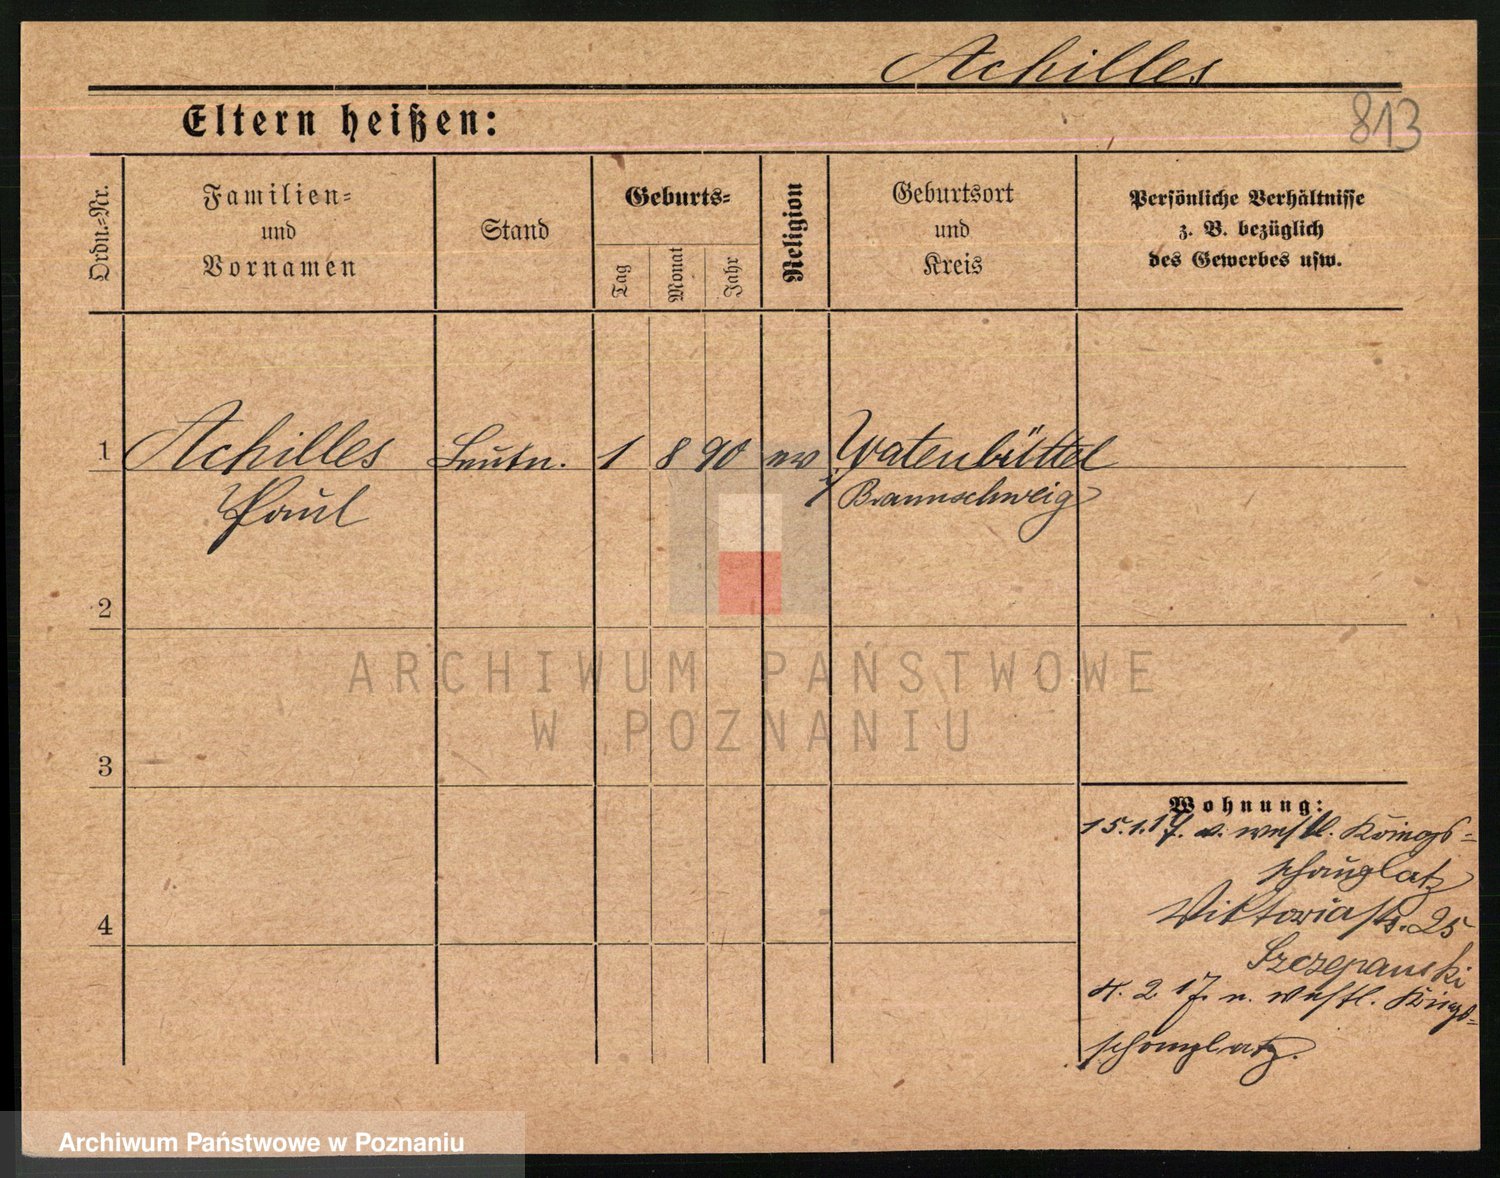 Achilles
Eltern heißen:
813
Ordn.-Nr.
Familien-
und
Vornamen
Stand
Geburts-
Tag
Monat
Jahr
Religion
Geburtsort
und
Kreis
Persönliche Verhältnisse
z. B. bezüglich
des Gewerbes usw.
1
Achilles
Leutn.
1
8
90
ev
Watenbüttel
Paul
Braunschweig
2
ARCHIWUM PAŃSTWOWE
W POZNANIU
3
Wohnung:
15.1.17. v. westl. Kriegs-
schauplatz
4
Viktoriastr. 25
Szczepanski
4. 2. 17. n. westl. Kriegs-
schauplatz.
Archiwum Państwowe w Poznaniu